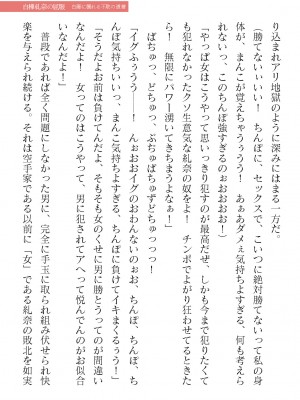 り込まれアリ地獄のように深みにはまる一方だ。
（勝てないぃぃい！　ちんぽに、セックスで、こいつに絶対勝てないって私の身
体が、まんこが覚えちゃうぅう！　あぁあダメぇ気持ちよすぎる、何も考えら
れない、このちんぽ強すぎるのぉおおおお！）
「やっぱ女はこうやって思いっきり犯すのが最高だぜ、しかも今まで犯りたくて
も犯れなかったクソ生意気な糺奈の女をよ！　チンポでよがり狂わせてるとき
ら！　無限にパワー湧いてきちまうよなぁ！」
ばちゅっ、どちゅっ、ぶちゅばちゅずどちゅっっっ！
「イグふぅうう　！　んぉおおイグのおわんないのぉお、ちんぽ、ちんぽ、ち
んぽ気持ちいいっ、まんこ気持ちよすぎる、ちんぽに負けてイキまくるぅう！」
「そうだよお前は負けてんだよ、そもそも女のくせに男に勝とうってのが間違い
なんだよ！　女ってのはこうやって、男に犯されてアヘって悦んでんのがお似合
いなんだよ！」
普段であれば全く問題にしなかった男に、完全に手玉に取られ組み伏せられ快
楽を与えられ続ける。それは空手家である以前に「女」である糺奈の敗北を如実